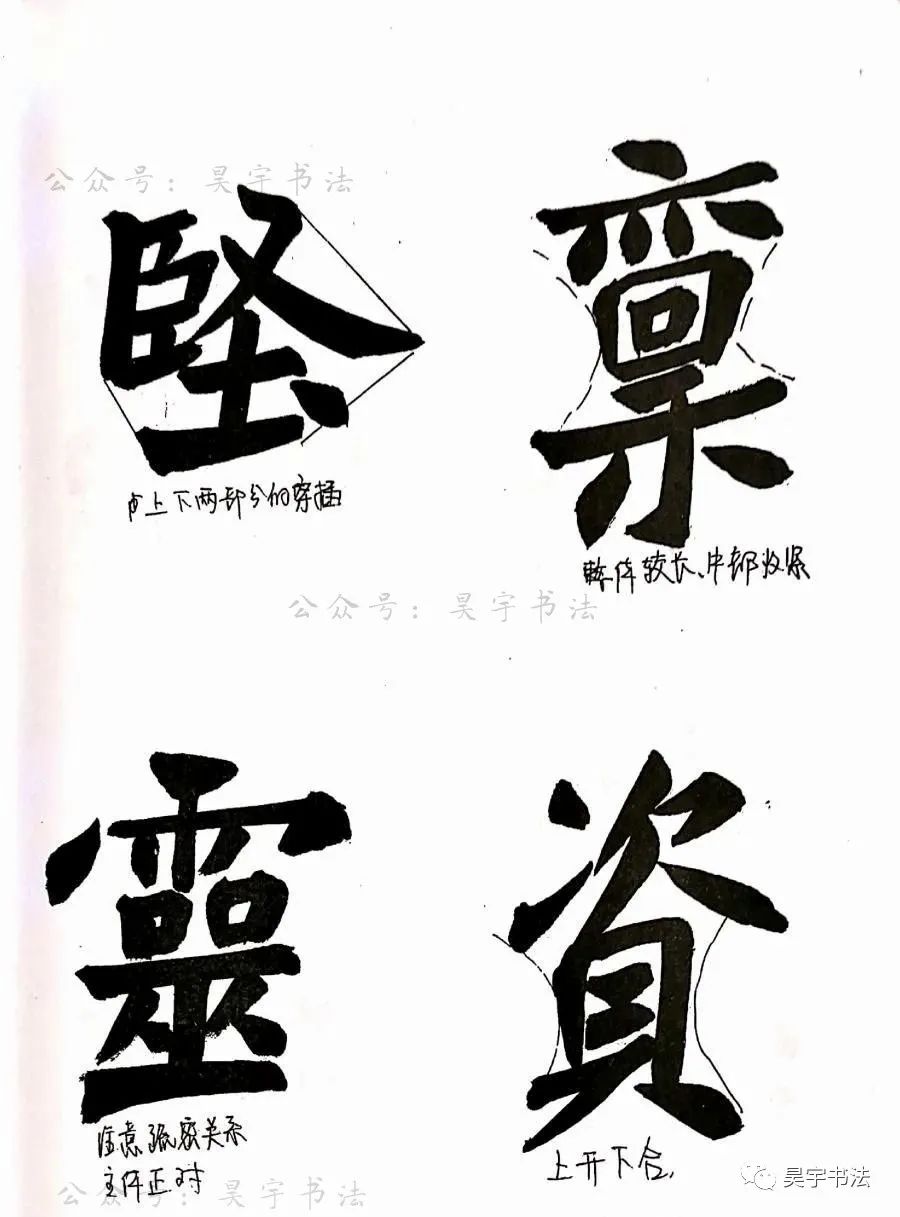 公众号：昊宇书法
堅
稟
上下两部分的穿插
整体较长、中部收紧
公众号：昊宇书法
靈
資
注意疏密关系
主体正对
上开下合、
公众号：昊宇书法
昊宇书法